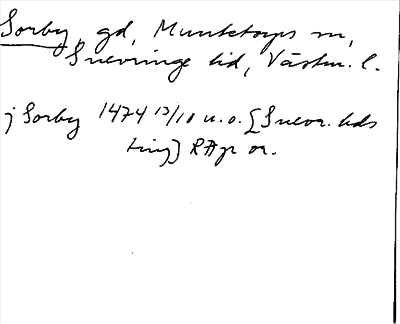 Sorby, gd, Munktorps sn,
Snevringe hd, Västm. l.
j Sorby 1474 13/10 u.o. [Snevr. hds
ting] RAp or.